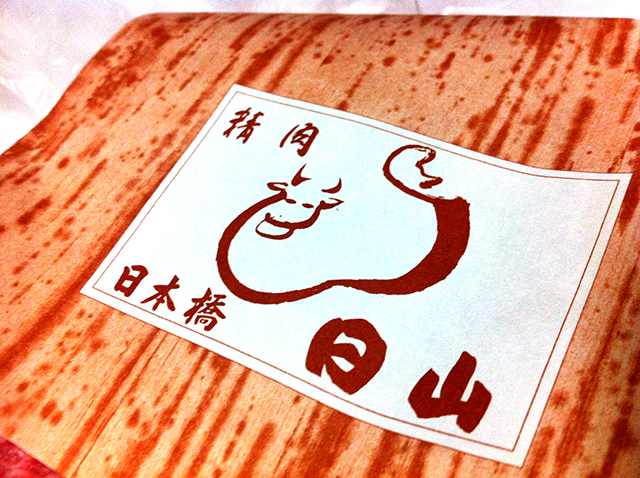 精肉
日本橋
日山